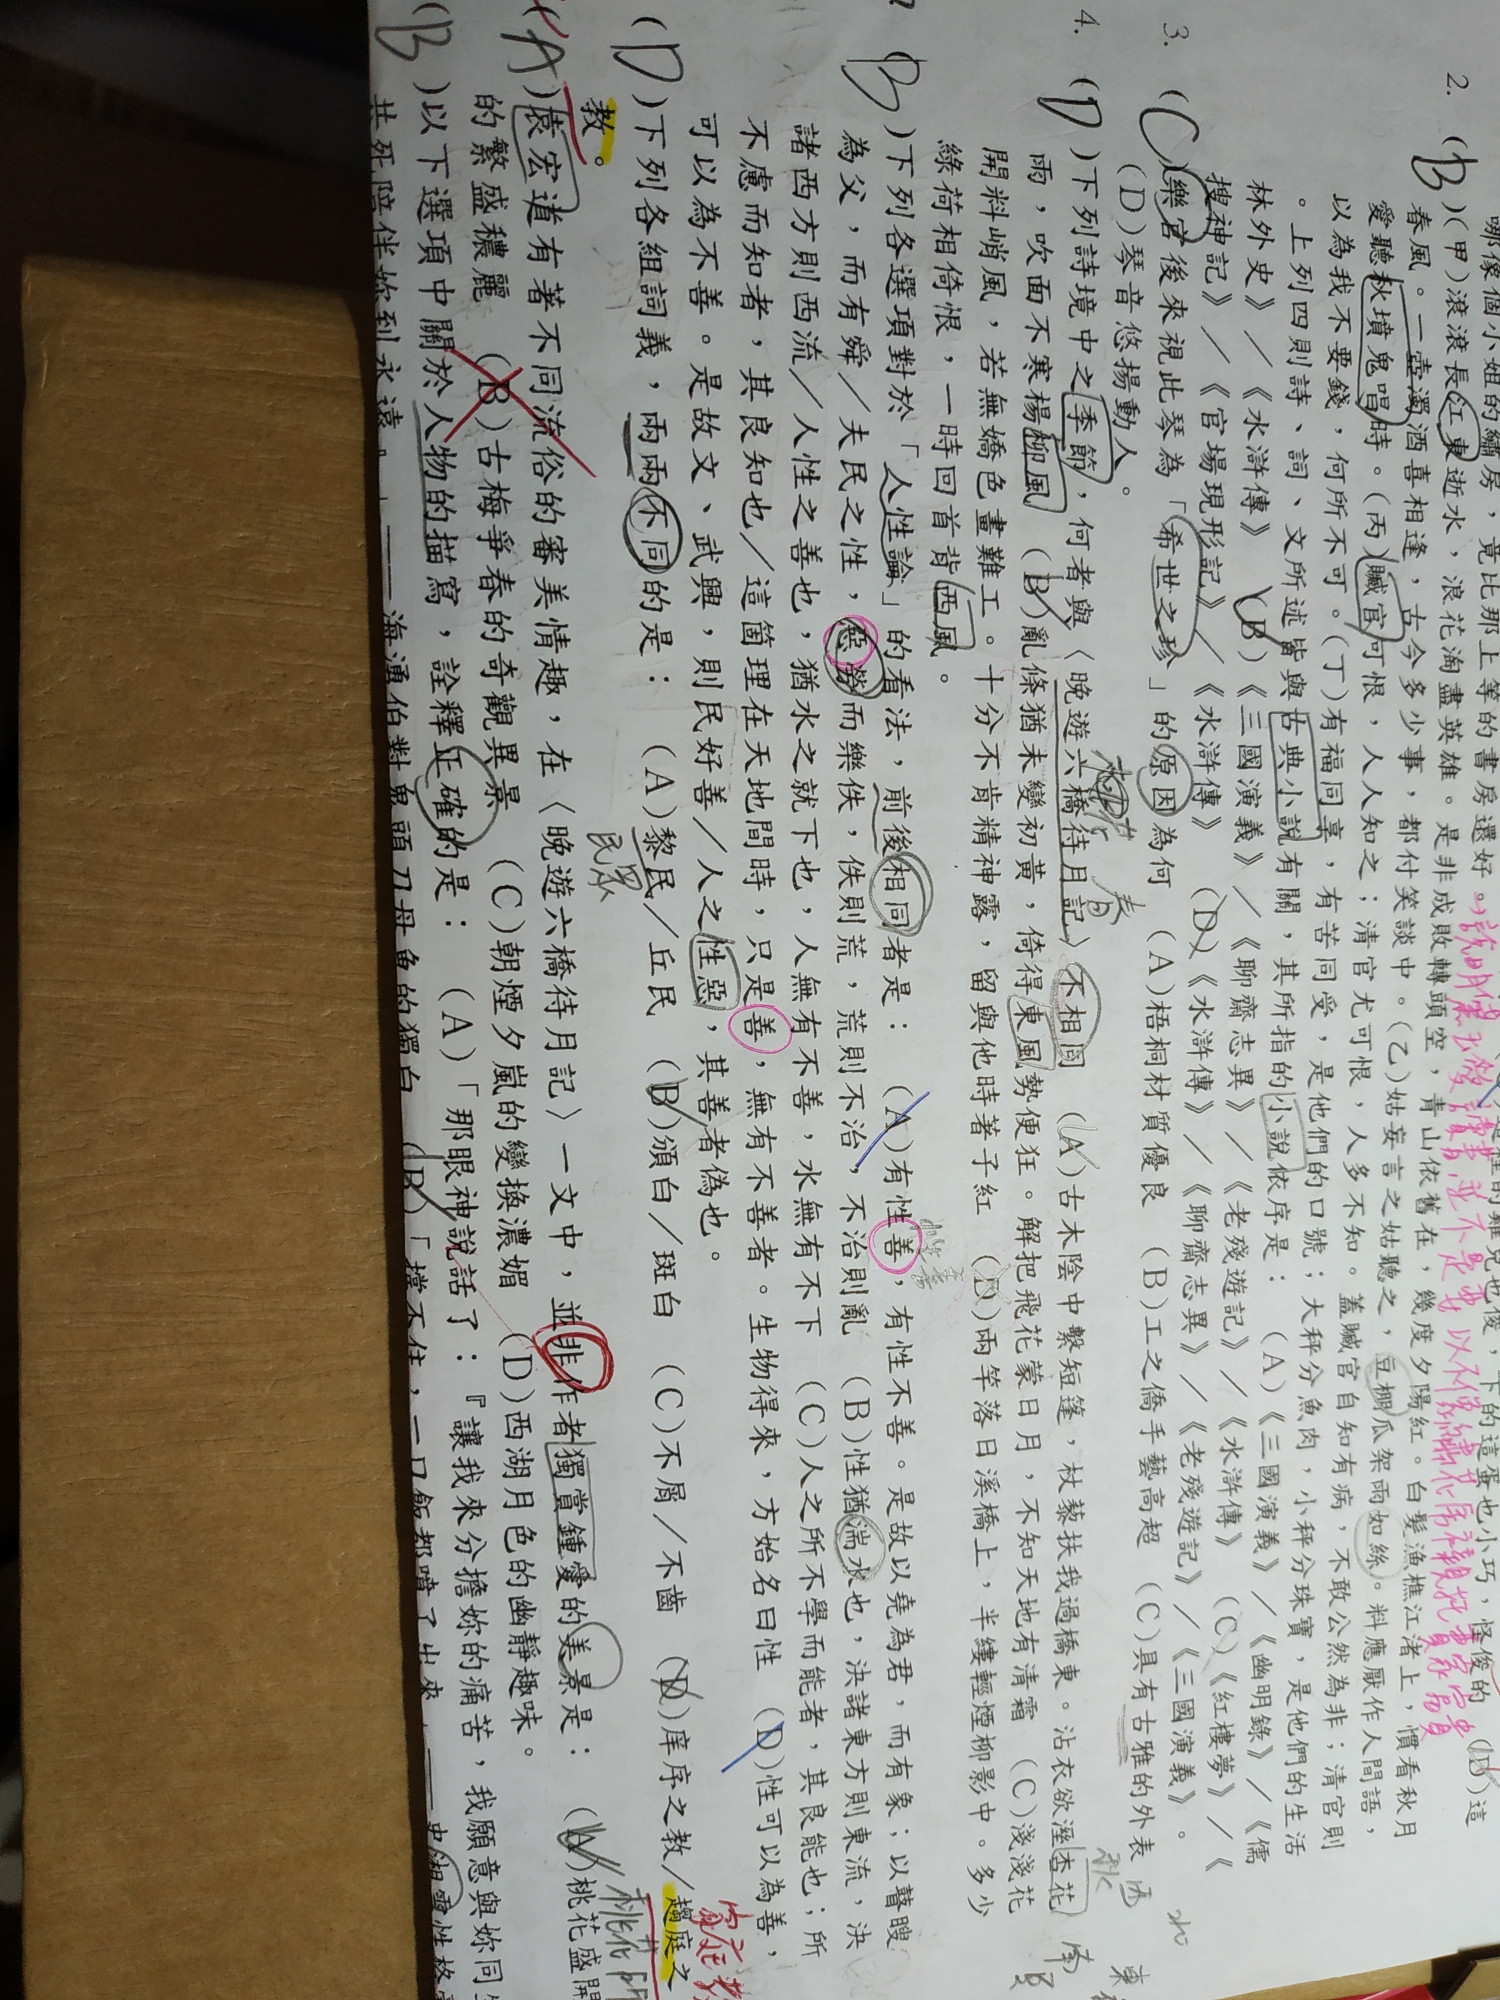 哪像個小姐的繡房，竟比那上等的書房還好。
下的這蛋也小巧，怪俊的 (D)這
2. (B)(甲)滾滾長江東逝水，浪花淘盡英雄。是非成敗轉頭空，青山依舊在，幾度夕陽紅。白髮漁樵江渚上，慣看秋月
春風。一壺濁酒喜相逢，古今多少事，都付笑談中。(乙)姑妄言之姑聽之，豆棚瓜架雨如絲。料應厭作人間語，
愛聽秋墳鬼唱時。(丙)贓官可恨，人人知之；清官尤可恨，人多不知。蓋贓官自知有病，不敢公然為非；清官則
以為我不要錢，何所不可。(丁)有福同享，有苦同受，是他們的口號；大秤分魚肉，小秤分珠寶，是他們的生活
。上列四則詩、詞、文所述皆與古典小說有關，其所指的小說依序是： (A)《三國演義》／《幽明錄》／《儒
林外史》／《水滸傳》 (B)《三國演義》／《聊齋志異》／《老殘遊記》／《水滸傳》 (C)《紅樓夢》／《
搜神記》／《官場現形記》／《水滸傳》 (D)《水滸傳》／《聊齋志異》／《老殘遊記》／《三國演義》。
3. (C)樂官後來視此琴為「希世之珍」的原因為何 (A)梧桐材質優良 (B)工之僑手藝高超 (C)具有古雅的外表
(D)琴音悠揚動人。
4. (D)下列詩境中之季節，何者與〈晚遊六橋待月記〉不相同 (A)古木陰中繫短篷，杖藜扶我過橋東。沾衣欲溼杏花
雨，吹面不寒楊柳風 (B)亂條猶未變初黃，倚得東風勢便狂。解把飛花蒙日月，不知天地有清霜 (C)淺淺花
開料峭風，若無嬌色畫難工。十分不肯精神露，留與他時著子紅 (D)兩竿落日溪橋上，半縷輕煙柳影中。多少
綠荷相倚恨，一時回首背西風。
(B)下列各選項對於「人性論」的看法，前後相同者是： (A)有性善，有性不善。是故以堯為君，而有象；以瞽瞍
為父，而有舜／夫民之性，惡勞而樂佚，佚則荒，荒則不治，不治則亂 (B)性猶湍水也，決諸東方則東流，決
諸西方則西流／人性之善也，猶水之就下也，人無有不善，水無有不下 (C)人之所不學而能者，其良能也；所
不慮而知者，其良知也／這箇理在天地間時，只是善，無有不善者。生物得來，方始名曰性 (D)性可以為善，
可以為不善。是故文、武興，則民好善／人之性惡，其善者偽也。
(D)下列各組詞義，兩兩不同的是： (A)黎民／丘民 (B)頒白／斑白 (C)不屑／不齒 (D)庠序之教／趨庭之
民眾
教。
(A)袁宏道有著不同流俗的審美情趣，在〈晚遊六橋待月記〉一文中，並非作者獨賞鍾愛的美景是： (A)桃花盛開
的繁盛穠麗 (B)古梅爭春的奇觀異景 (C)朝煙夕嵐的變換濃媚 (D)西湖月色的幽靜趣味。
(B)以下選項中關於人物的描寫，詮釋正確的是： (A)「那眼神說話了：『讓我來分擔妳的痛苦，我願意與妳同
共死陪伴妳到永遠』」——海湧伯對鬼頭刀母魚的獨白 (B)「撐不住，一口飯都噴了出來」——史湘雲性格